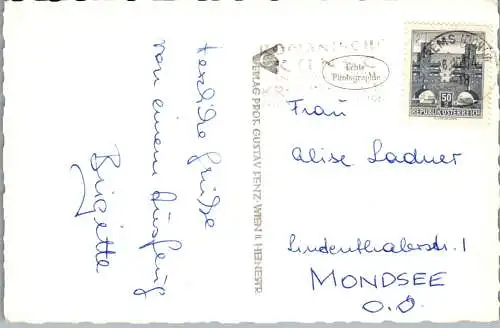 Herzliche Grüße
von einem Ausflug
Brigitte
VERLAG PROF. GUSTAV DENZ-WIEN II. HEINESTR.
ROMANISCHE
KUNST
Echte
Photographie
KREMS
50
REPUBLIK ÖSTERREICH
Frau
Alise Ladner
Lindenthalerstr. 1
MONDSEE
O.Ö.